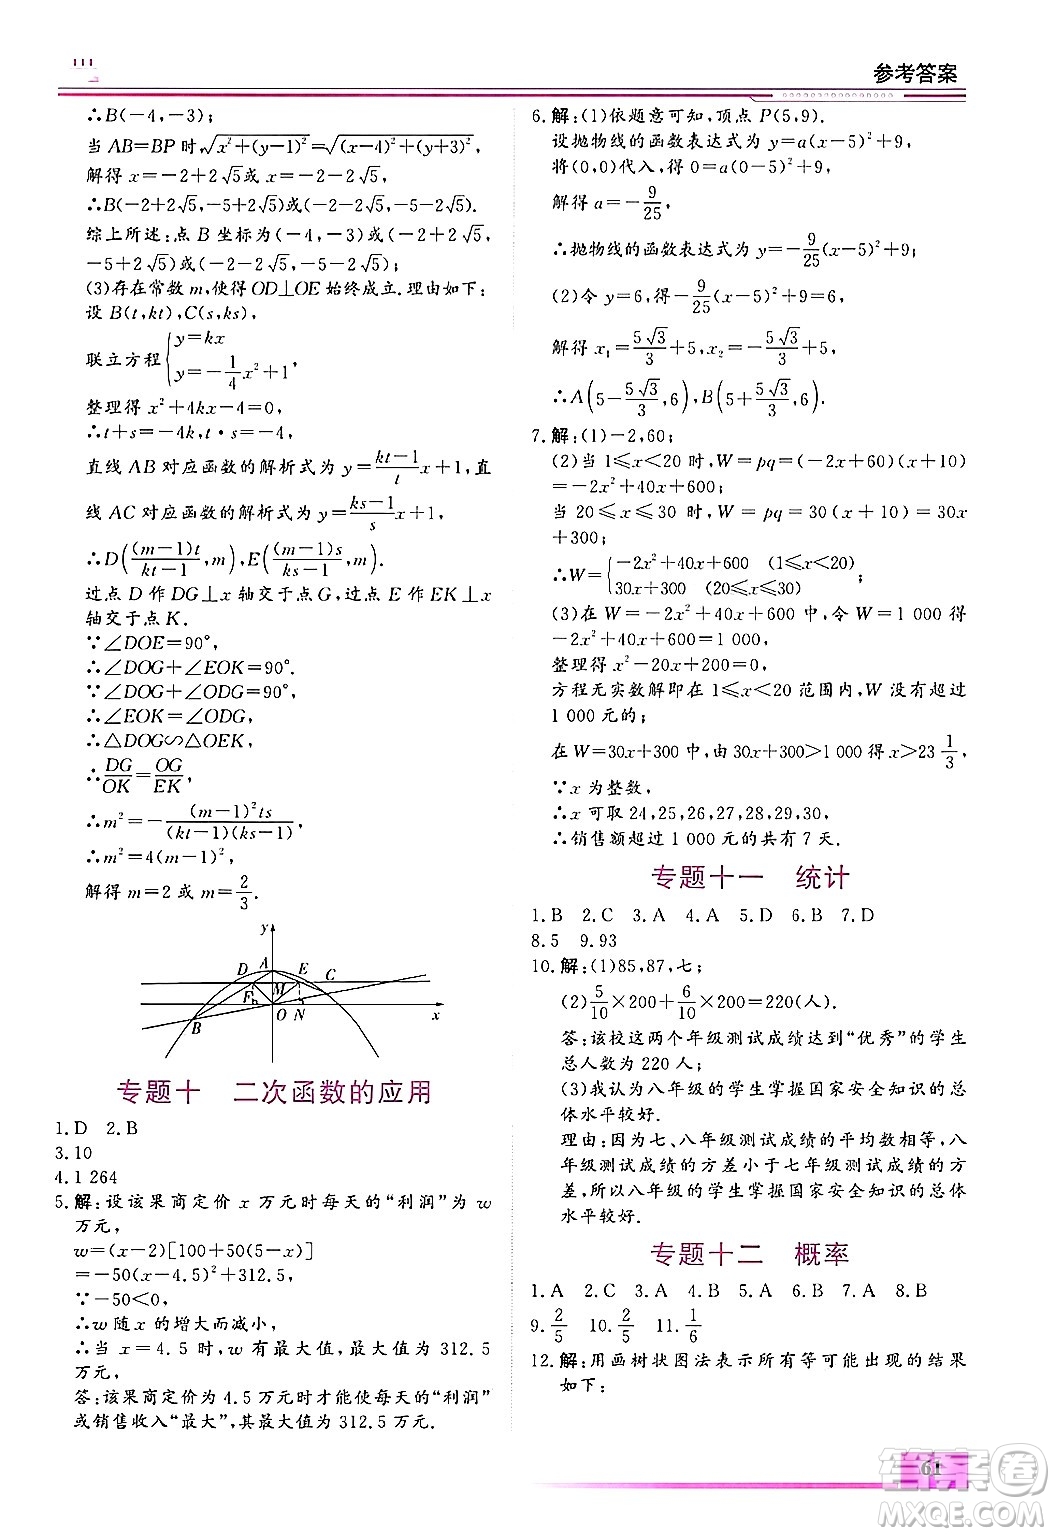 参考答案
∴B(－4,－3);
当 AB=BP 时,√(x²+(y－1)²)=√((x－4)²+(y+3)²),
解得 x=－2+2√5或 x=－2－2√5,
∴B(－2+2√5,－5+2√5)或(－2－2√5,－5－2√5).
综上所述:点 B 坐标为(－4,－3)或(－2+2√5,
－5+2√5)或(－2－2√5,－5－2√5);
(3)存在常数 m,使得 OD⊥OE 始终成立.理由如下:
设 B(t,kt),C(s,ks),
联立方程{y=kx
y=－1/4 x²+1,
整理得 x²+4kx－4=0,
∴t+s=－4k,t·s=－4,
直线 AB 对应函数的解析式为 y=(kt－1)/t x+1,直
线 AC 对应函数的解析式为 y=(ks－1)/s x+1,
∴D((m－1)t/(kt－1),m),E((m－1)s/(ks－1),m).
过点 D 作 DG⊥x 轴交于点 G,过点 E 作 EK⊥x
轴交于点 K.
∵∠DOE=90°,
∴∠DOG+∠EOK=90°.
∵∠DOG+∠ODG=90°,
∴∠EOK=∠ODG,
∴△DOG∽△OEK,
∴DG/OK=OG/EK,
∴m²=－(m－1)²ts/((kt－1)(ks－1)),
∴m²=4(m－1)²,
解得 m=2 或 m=2/3.
y
D A E
F M C
B O N x
专题十 二次函数的应用
1.D 2.B
3.10
4.1 264
5.解:设该果商定价 x 万元时每天的“利润”为 w
万元,
w=(x－2)[100+50(5－x)]
=－50(x－4.5)²+312.5,
∵－50<0,
∴w 随 x 的增大而减小,
∴当 x=4.5 时,w 有最大值,最大值为 312.5
万元,
答:该果商定价为 4.5 万元时才能使每天的“利润”
或“销售收入”最大”,其最大值为 312.5 万元.
6.解:(1)依题意可知,顶点 P(5,9).
设抛物线的函数表达式为 y=a(x－5)²+9,
将(0,0)代入,得 0=a(0－5)²+9,
解得 a=－9/25,
∴抛物线的函数表达式为 y=－9/25(x－5)²+9;
(2)令 y=6,得－9/25(x－5)²+9=6,
解得 x₁=5√3/3+5,x₂=－5√3/3+5,
∴A(5－5√3/3,6),B(5+5√3/3,6).
7.解:(1)－2,60;
(2)当 1⩽x<20 时,W=pq=(－2x+60)(x+10)
=－2x²+40x+600;
当 20⩽x⩽30 时,W=pq=30(x+10)=30x
+300;
∴W={－2x²+40x+600 (1⩽x<20)
30x+300 (20⩽x⩽30) ;
(3)在 W=－2x²+40x+600 中,令 W=1 000 得
－2x²+40x+600=1 000,
整理得 x²－20x+200=0,
方程无实数解即在 1⩽x<20 范围内,W 没有超过
1 000 元的;
在 W=30x+300 中,由 30x+300>1 000 得 x>23 1/3,
∵x 为整数,
∴x 可取 24,25,26,27,28,29,30,
∴销售额超过 1 000 元的共有 7 天.
专题十一 统计
1.B 2.C 3.A 4.A 5.D 6.B 7.D
8.5 9.93
10.解:(1)85,87,七;
(2)5/10×200+6/10×200=220(人).
答:该校这两个年级测试成绩达到“优秀”的学生
总人数为 220 人;
(3)我认为八年级的学生掌握国家安全知识的总
体水平较好.
理由:因为七、八年级测试成绩的平均数相等,八
年级测试成绩的方差小于七年级测试成绩的方
差,所以八年级的学生掌握国家安全知识的总体
水平较好.
专题十二 概率
1.A 2.C 3.A 4.B 5.D 6.C 7.B 8.A
9.2/5 10.2/5 11.1/6
12.解:用画树状图法表示所有等可能出现的结果
如下:
61
答案卷
MXQE.COM